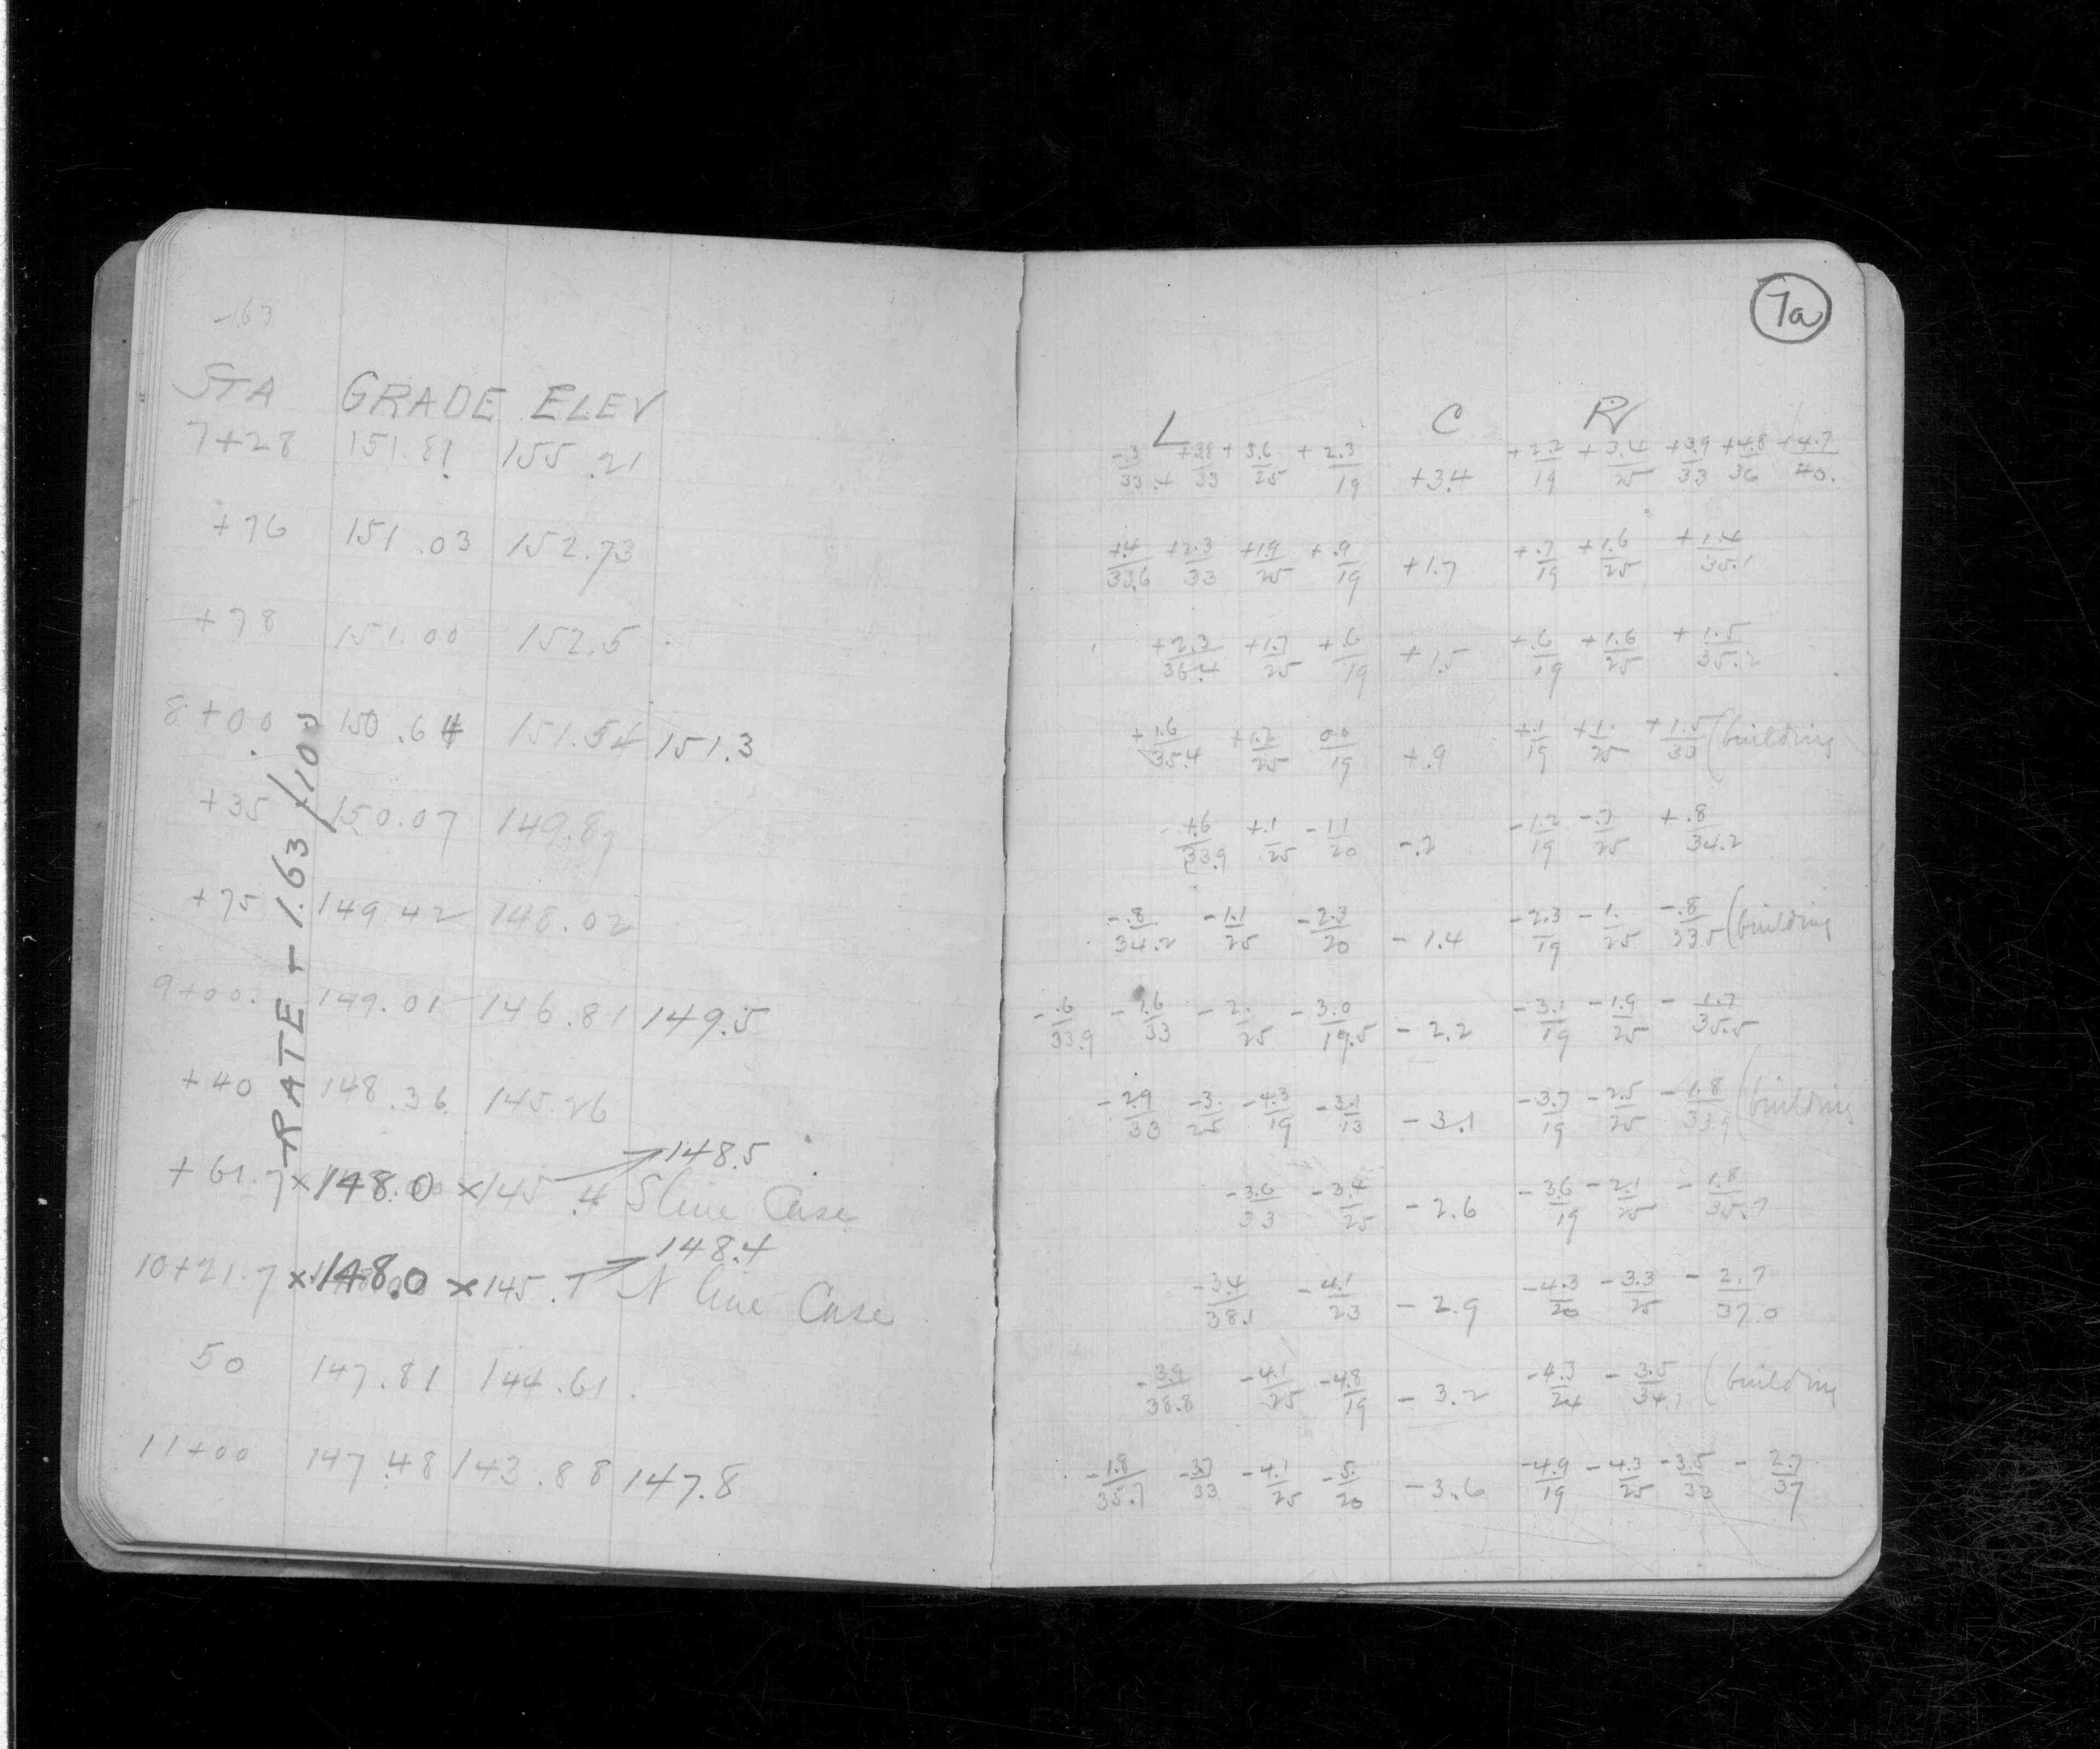 -1.63
STA GRADE ELEV
7+28 151.81 155.21
+76 151.03 152.73
+78 151.00 152.5
8+00 150.64 151.54 151.3
+35 150.07 149.87
+75 149.42 148.02
9+00. 149.01 146.81 149.5
+40 148.36 145.26
148.5
+61.7 x 148.0 x 145.4 S line Case
148.4
10+21.7 x 148.0 x 145.1 N line Case
50 147.81 144.61.
11+00 147.48 143.88 147.8
RATE - 1.63/100
7a
L C R
-.3/33.4 +3.8/33 +3.6/25 +2.3/19 +3.4 +2.2/19 +3.4/25 +3.9/33 +4.8/36 +4.7/40.
+.4/33.6 +2.3/33 +1.9/25 +.9/19 +1.7 +.7/19 +1.6/25 +1.4/35.1
+2.3/36.4 +1.7/25 +.6/19 +1.5 +.6/19 +1.6/25 +1.5/35.2
+1.6/35.4 +1.2/25 0.0/19 +.9 +.1/19 +1./25 +1.5/33 (building
+.6/33.9 +.1/25 -1.1/20 -.2 -1.2/19 -.7/25 +.8/34.2
-.8/34.2 -1.1/25 -2.3/20 -1.4 -2.3/19 -1./25 -.8/33.5 (building
-.6/33.9 -1.6/33 -2./25 -3.0/19.5 -2.2 -3.1/19 -1.9/25 -1.7/35.5
-2.9/33 -3./25 -4.3/19 -3.1/13 -3.1 -3.7/19 -2.5/25 -1.8/33.9 (building
-3.6/33 -3.4/25 -2.6 -3.6/19 -2.1/25 -1.8/35.7
-3.4/38.1 -4.1/23 -2.9 -4.3/20 -3.3/25 -2.7/37.0
-3.9/38.8 -4.1/25 -4.8/19 -3.2 -4.3/24 -3.5/34.1 (building
-1.8/35.7 -3.7/33 -4.1/25 -5./20 -3.6 -4.9/19 -4.3/25 -3.5/33 -2.7/37